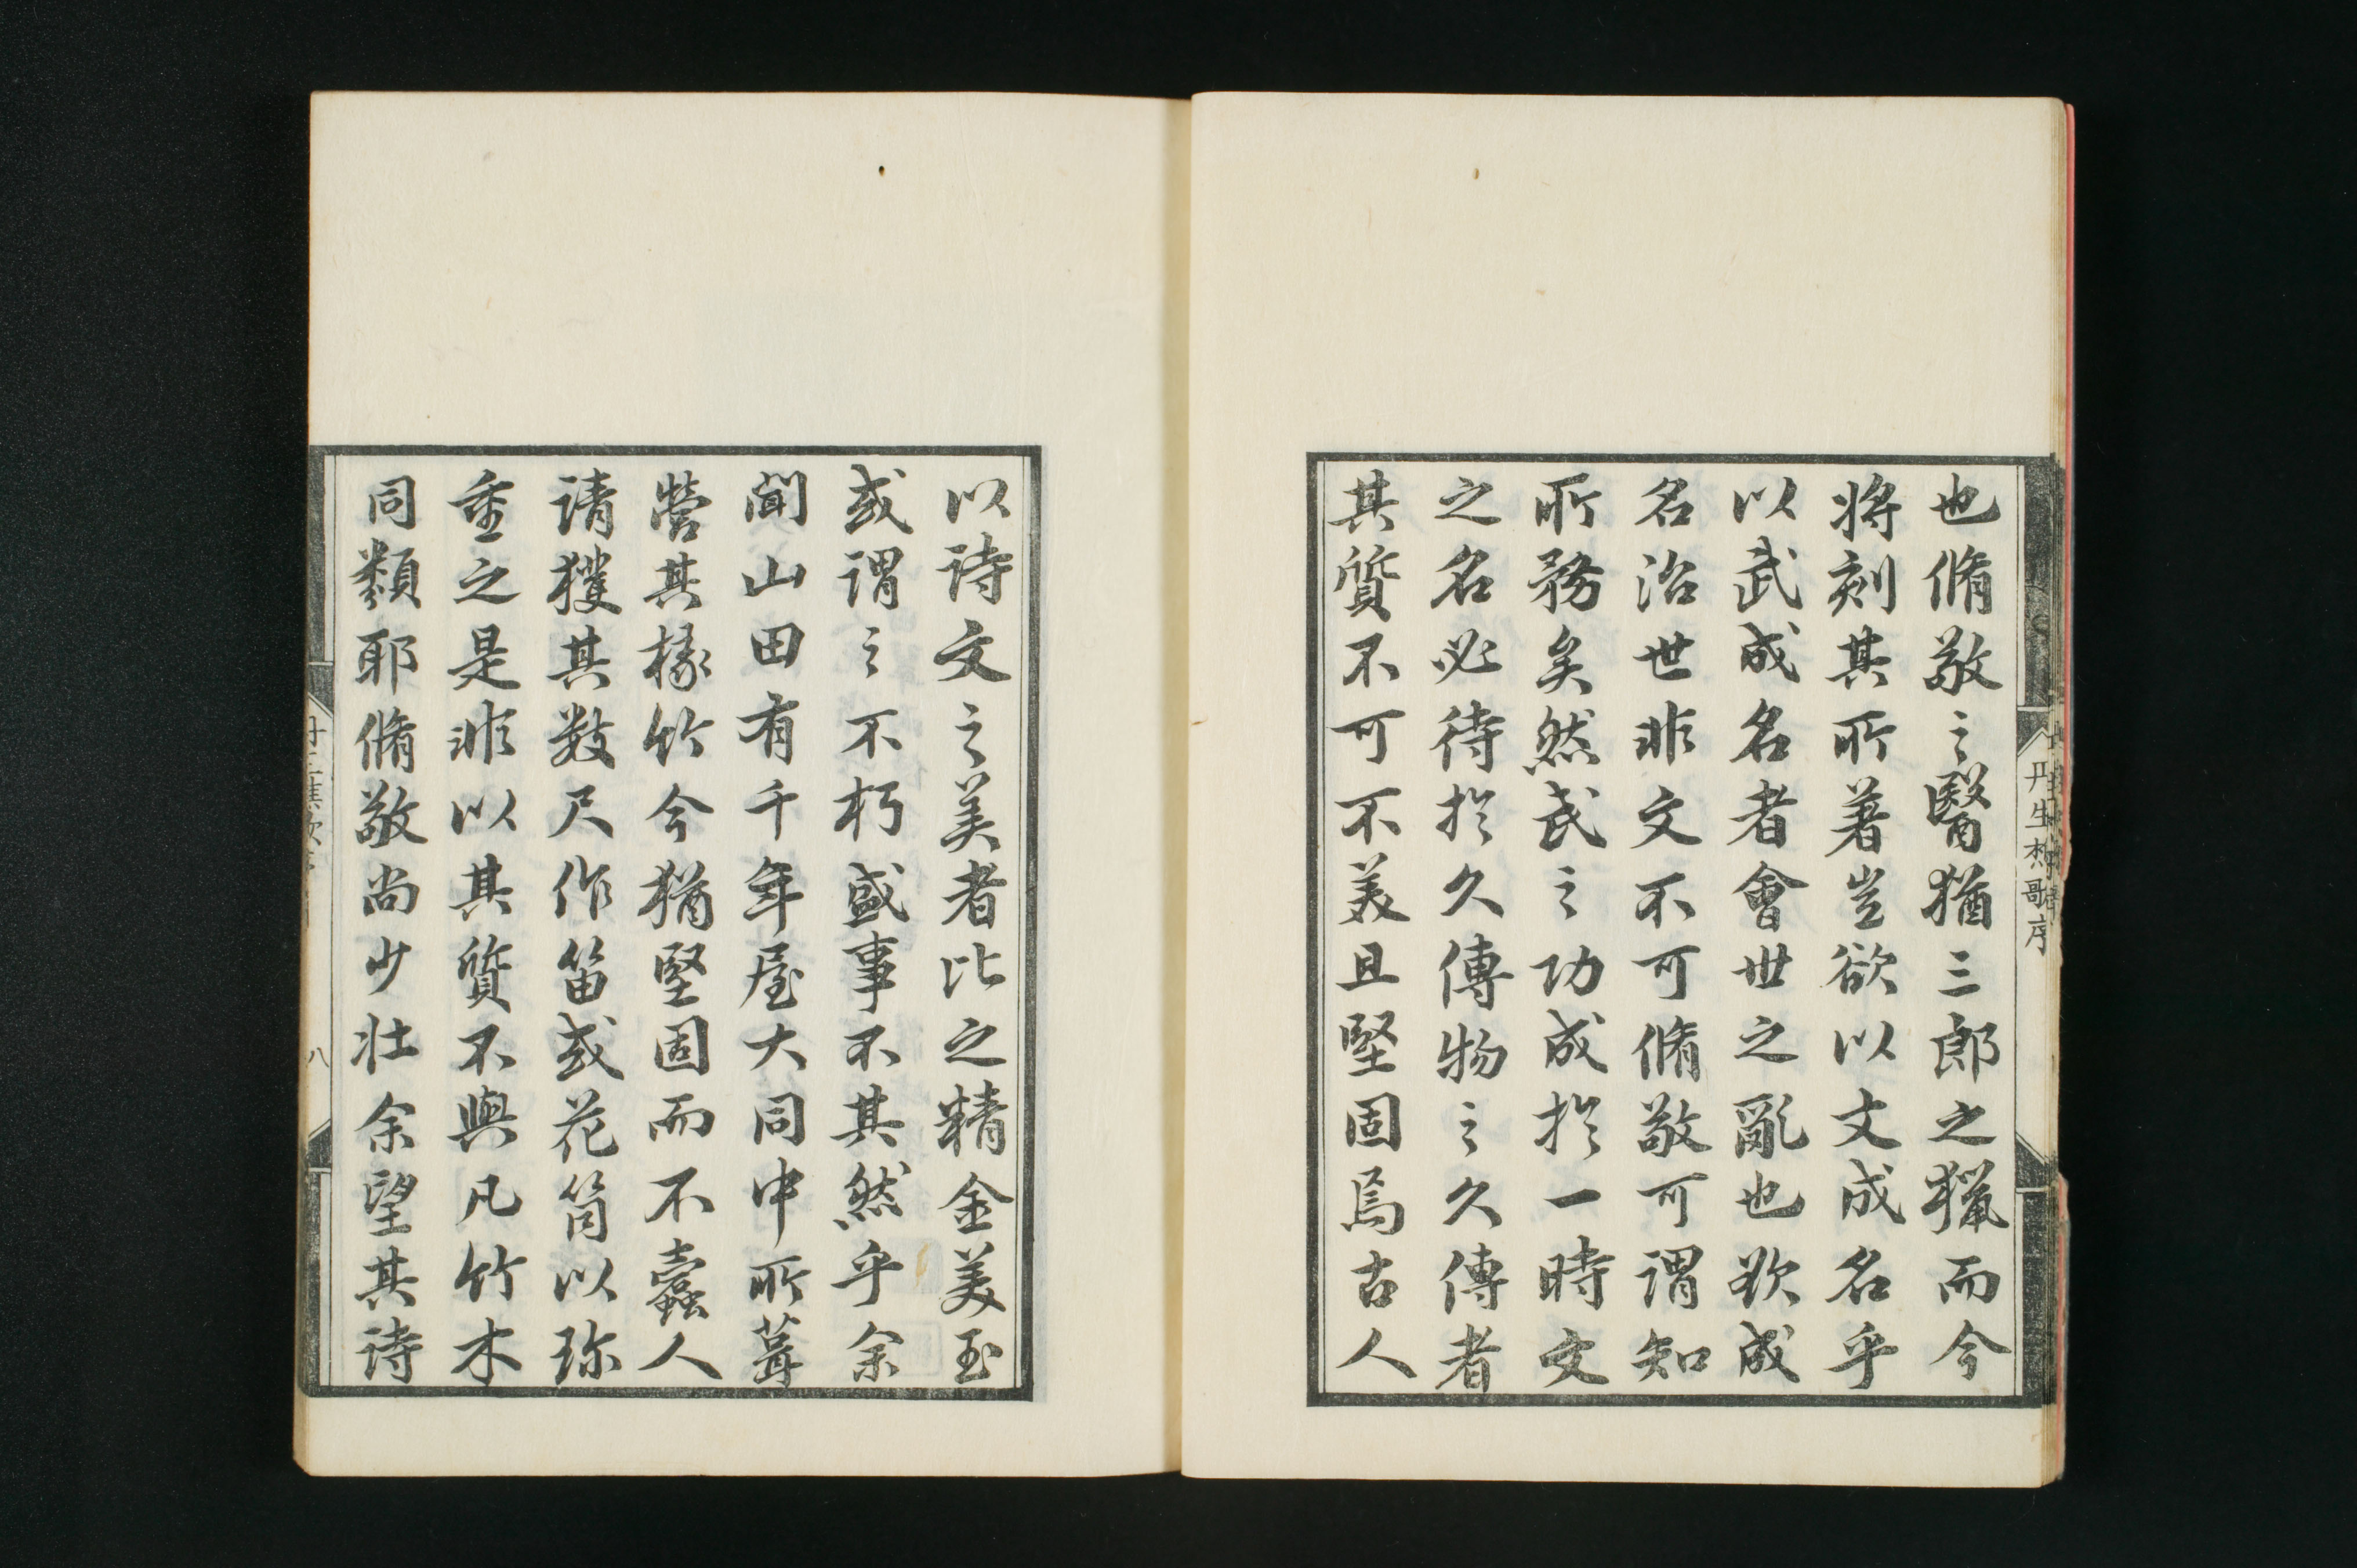 也脩敬之醫猶三郎之獵而今
将刻其所著豈欲以文成名乎
以武成名者會世之亂也欲成
名治世非文不可脩敬可謂知
所務矣然武之功成於一時文
之名必待於久傳物之久傳者
其質不可不美且堅固焉古人
丹生樵哥序
以詩文之美者比之精金美玉
或謂之不朽盛事不其然乎余
聞山田有千年屋大同中所葺
營其椽竹今猶堅固而不蠧人
请獲其数尺作笛或花筒以珎
重之是非以其質不與凡竹木
同類耶脩敬尚少壮余望其詩
八